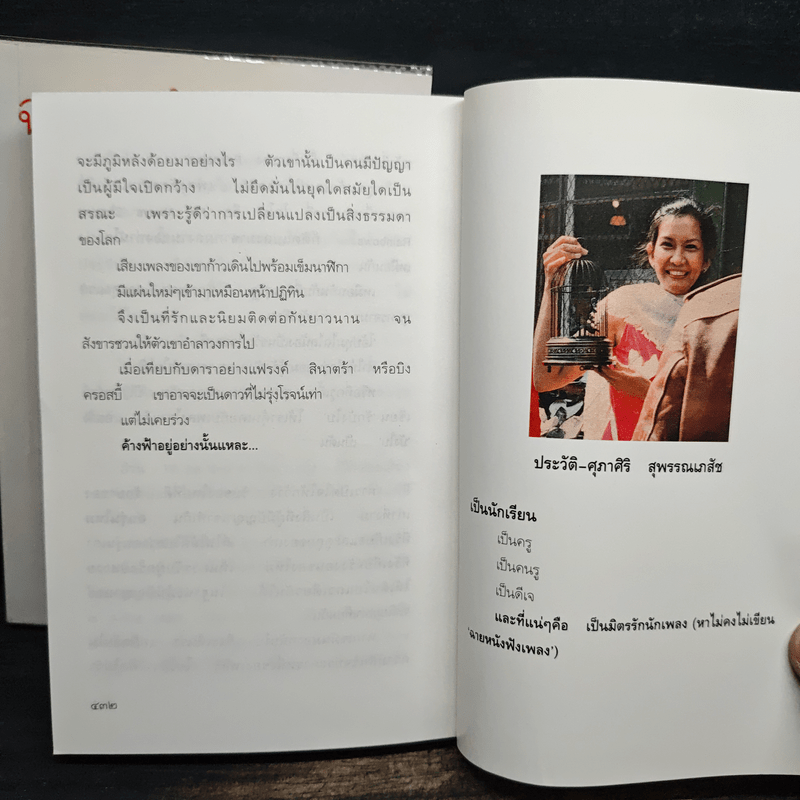 จะมีภูมิหลังด้อยมาอย่างไร ตัวเขานั้นเป็นคนมีปัญญา
เป็นผู้มีใจเปิดกว้าง ไม่ยึดมั่นในยุคใดสมัยใดเป็น
สรณะ เพราะรู้ดีว่าการเปลี่ยนแปลงเป็นสิ่งธรรมดา
ของโลก
เสียงเพลงของเขาก้าวเดินไปพร้อมเข็มนาฬิกา
มีแผ่นใหม่ๆเข้ามาเหมือนหน้าปฏิทิน
จึงเป็นที่รักและนิยมติดต่อกันยาวนาน จน
สังขารชวนให้ตัวเขาอำลาวงการไป
เมื่อเทียบกับดาราอย่างแฟรงค์ สินาตร้า หรือบิง
ครอสบี้ เขาอาจจะเป็นดาวที่ไม่รุ่งโรจน์เท่า
แต่ไม่เคยร่วง
ค้างฟ้าอยู่อย่างนั้นแหละ...
๔๓๒
ประวัติ-ศุภาศิริ สุพรรณเภสัช
เป็นนักเรียน
เป็นครู
เป็นคนรู
เป็นดีเจ
และที่แน่ๆคือ เป็นมิตรรักนักเพลง (หาไม่คงไม่เขียน
'ฉายหนังฟังเพลง')